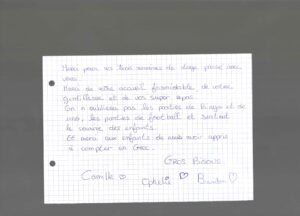 Merci pour ces trois semaines de stage passé avec
vous.
Merci de votre accueil formidable, de votre
gentillesse et de vos super repas.
On n'oubliera pas les parties de Bingo et de
uno, les parties de football et surtout
le sourire des enfants.
Et merci aux enfants de nous avoir appris
à compter en Grec.
GROS BISOUS
Camille Ophélie Brandon